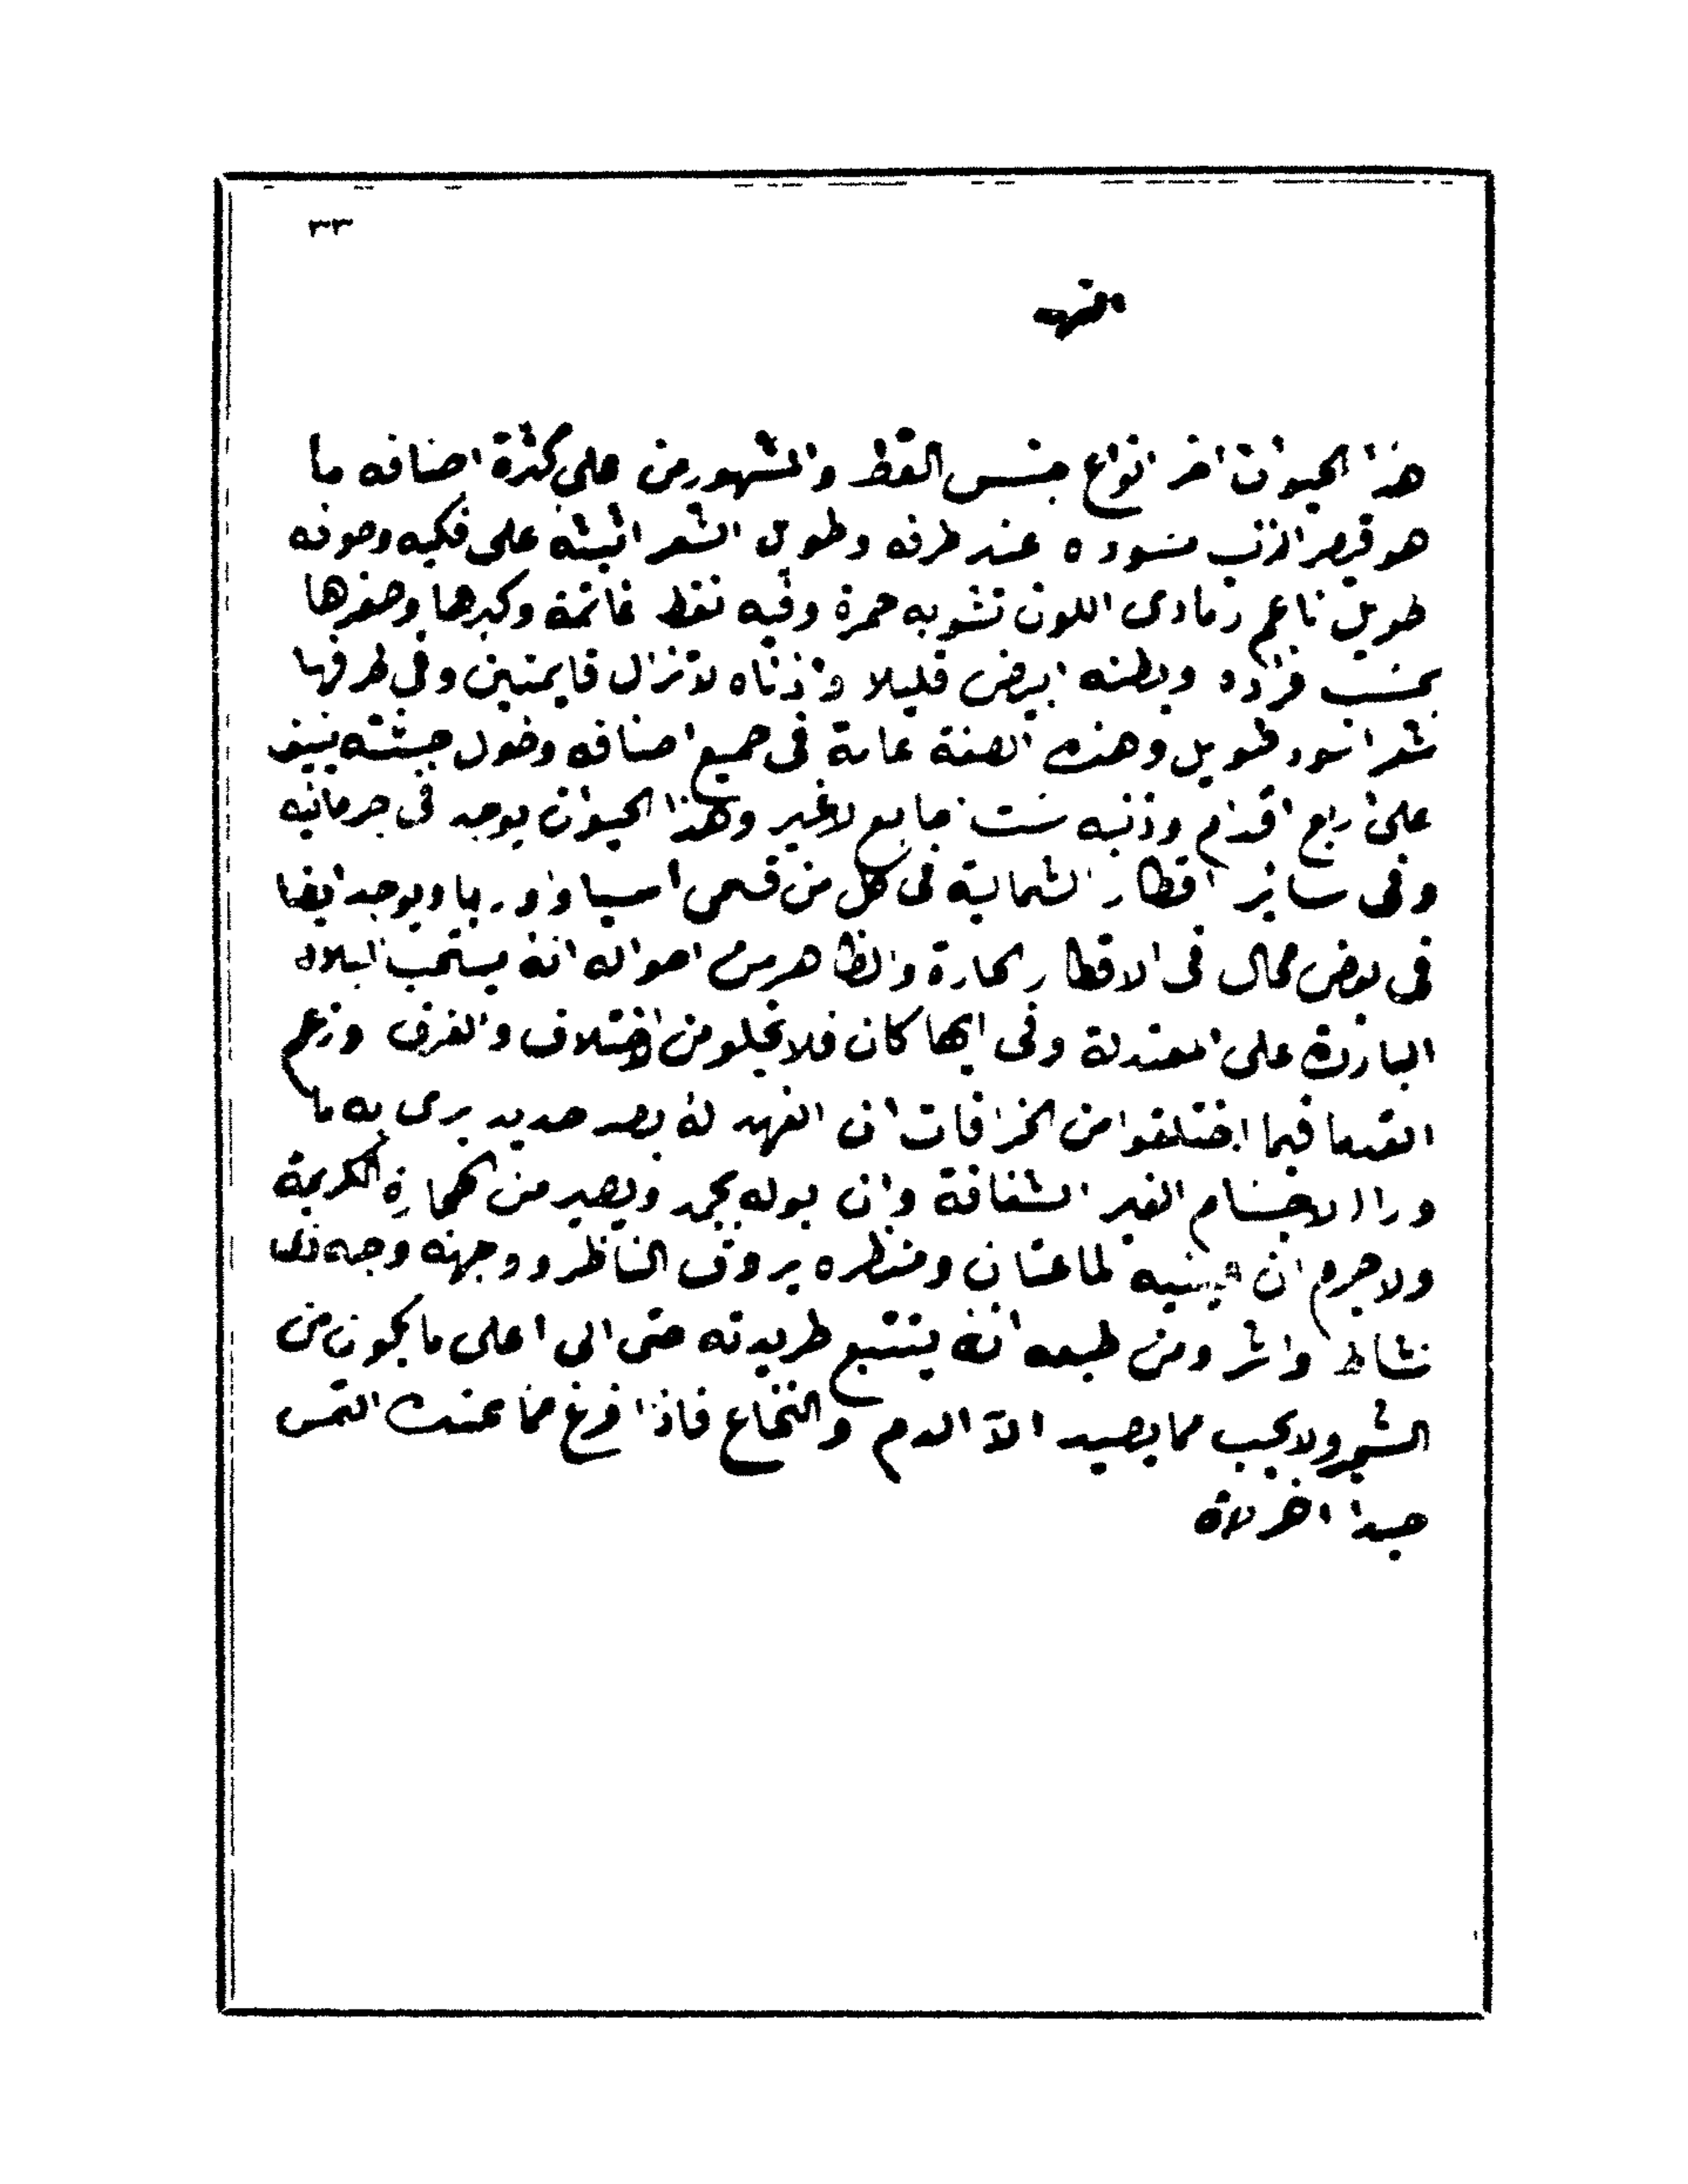 ٣٣
الفهد
هذا الحيوان اخر انواع جنس القط والمشهور من على كثرة اصنافه ما
هو قصير الذنب مسوده عند طرفه وطويل الشعر اثيثه على فكيه وصوفه
طويل ناعم رمادى اللون تشوبه حمرة وفيه نقط غاتمة وكبرها وصغرها
بحسب فراده وبطنه ابيض قليلا واذناه لاتزال قايمتين وفي طرفها
شعر اسود طويل وهذه الصفة عامة فى جميع اصنافه وطول جثته ينيف
على اربع اقدام وذنبه ست اصابع لاغير وهذا الحيوان يوجد فى جرمانيه
وفى ساير اقطار الشمالية فى كل من قسمى اسيا واوربا ويوجد ايضا
في بعض محال فى الاقطار الحارة والظاهر من احواله انه يستحب البلاد
الباردة على المعتدلة وفى ايها كان فلا يخلو من اختلاف والفرق وزعم
القدما فيما اختلقوا من الخرافات ان الفهد له بصر حديد يرى به ما
ورا الاجسام الغير الشفافة وان بوله يجمد ويصير من الحجارة الكريمة
ولاجرم ان عينيه لماعتان ومنظره يروق الناظر ووجهه وجه ذى
نشاط واشر ومن طبعه انه يتتبع طريدته حتى الى اعلى ما يكون من
الشجر ولايحب مما يصيد الا الدم والنخاع فاذا فرغ مما عنده التمس
صيدا اخر لاة